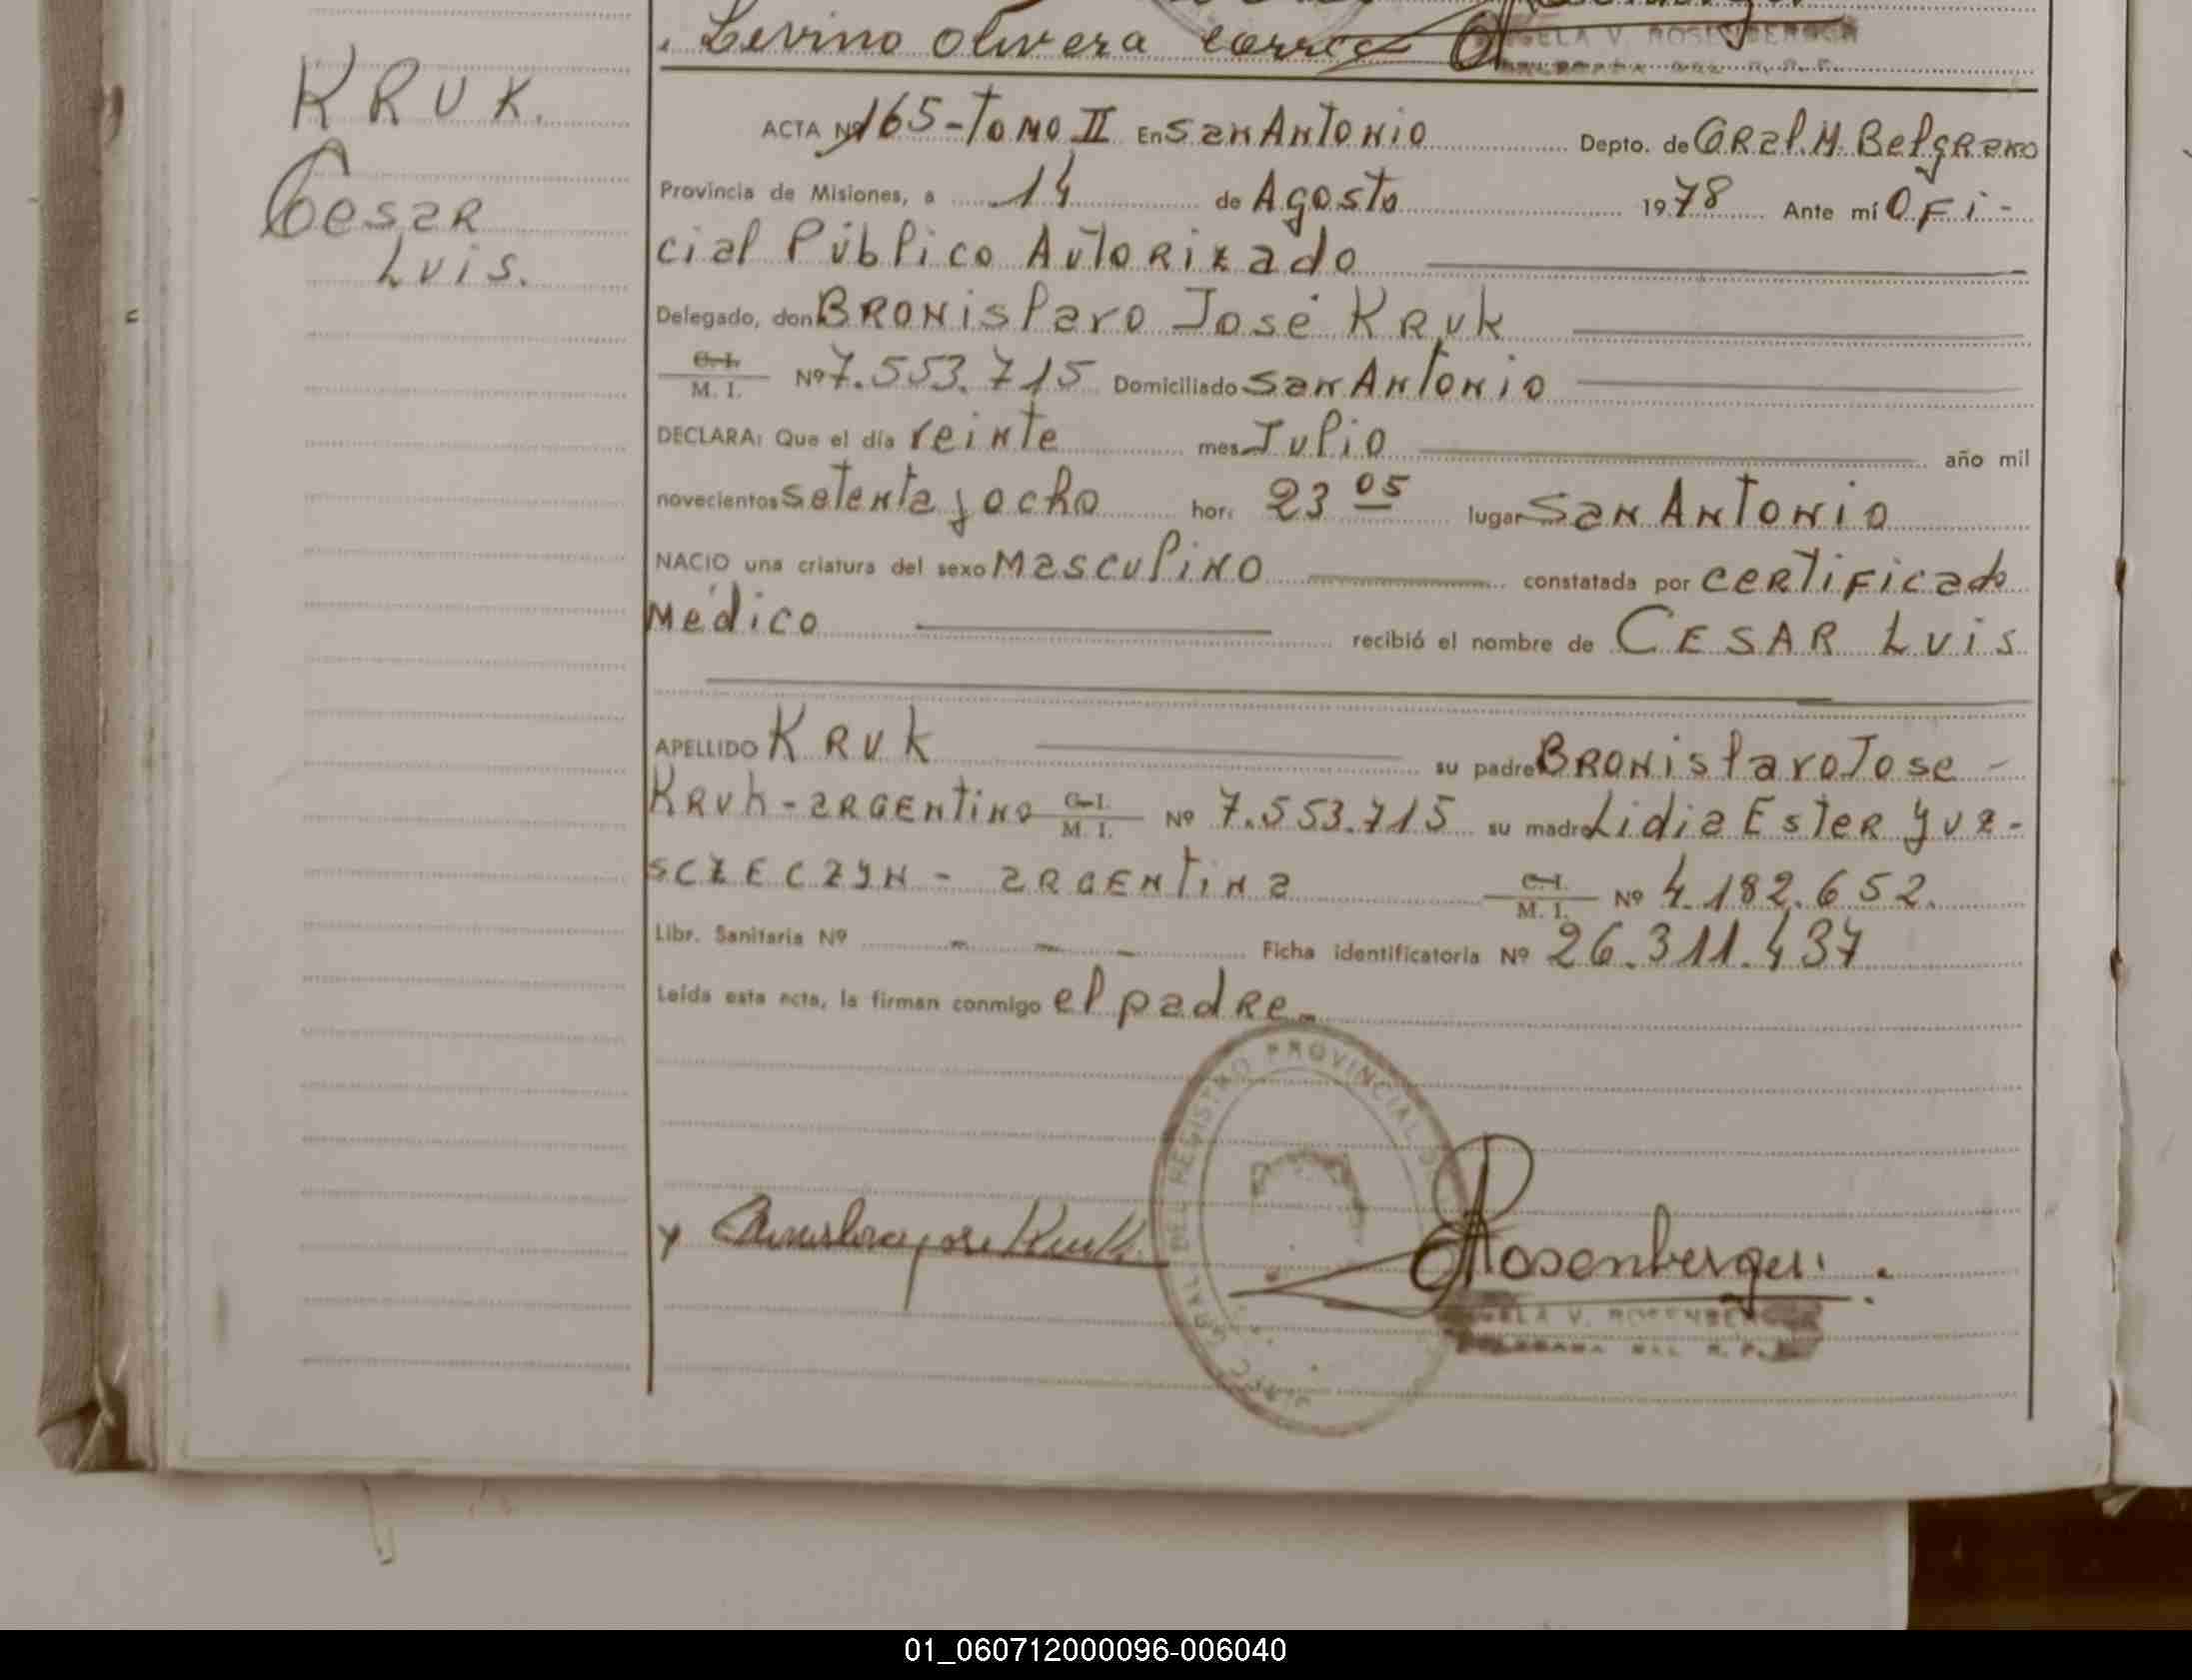 Levino Olivera
KRUK.
Cesar
Luis.
ACTA Nº 165-Tomo II En San Antonio Depto. de GRal. M. Belgrano
Provincia de Misiones, a 14 de Agosto 1978 Ante mí OFi-
cial Público Autorizado
Delegado, don Bronislavo José Kruk
C.I.
M. I. Nº 7.553.715 Domiciliado San Antonio
DECLARA: Que el día veinte mes Julio año mil
novecientos setenta y ocho hor: 23 05 lugar San Antonio
NACIO una criatura del sexo Masculino constatada por certificado
Médico recibió el nombre de CESAR Luis
APELLIDO Kruk su padre Bronislavo Jose
Kruk - argentino C.I. M. I. Nº 7.553.715 su madre Lidia Ester Yuz-
sczeczyn - argentina C.I. M. I. Nº 4.182.652.
Libr. Sanitaria Nº - - - Ficha identificatoria Nº 26.311.437
Leída esta acta, la firman conmigo el padre.
DEL REGISTRO PROVINCIAL
y Bronislavo jose Kruk Rosenberger.
ANGELA V. ROSENBERGER
01_060712000096-006040